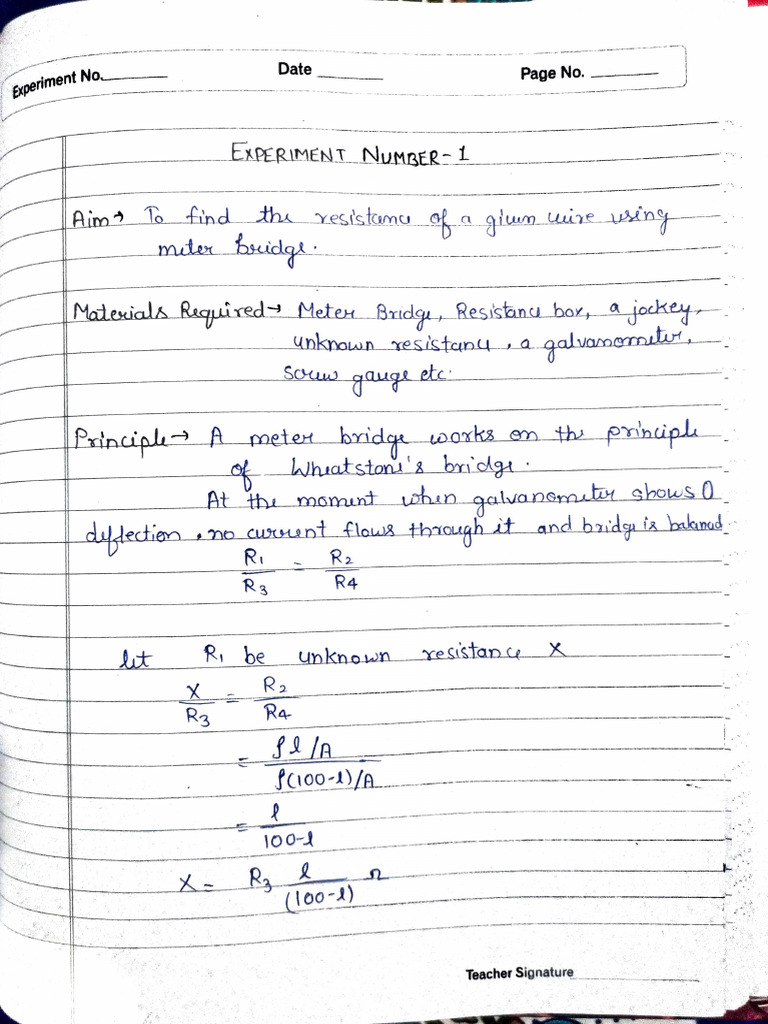 Experiment No. Date Page No.
EXPERIMENT NUMBER-1
Aim→ To find the resistance of a given wire using
meter bridge.
Materials Required→ Meter Bridge, Resistance box, a jockey,
unknown resistance, a galvanometer,
screw gauge etc.
Principle→ A meter bridge works on the principle
of Wheatstone's bridge.
At the moment when galvanometer shows 0
deflection, no current flows through it and bridge is balanced
R₁/R₃ = R₂/R₄
let R₁ be unknown resistance X
X/R₃ = R₂/R₄
= ρl/A / ρ(100-l)/A
= l/100-l
X = R₃ l/(100-l) Ω
Teacher Signature